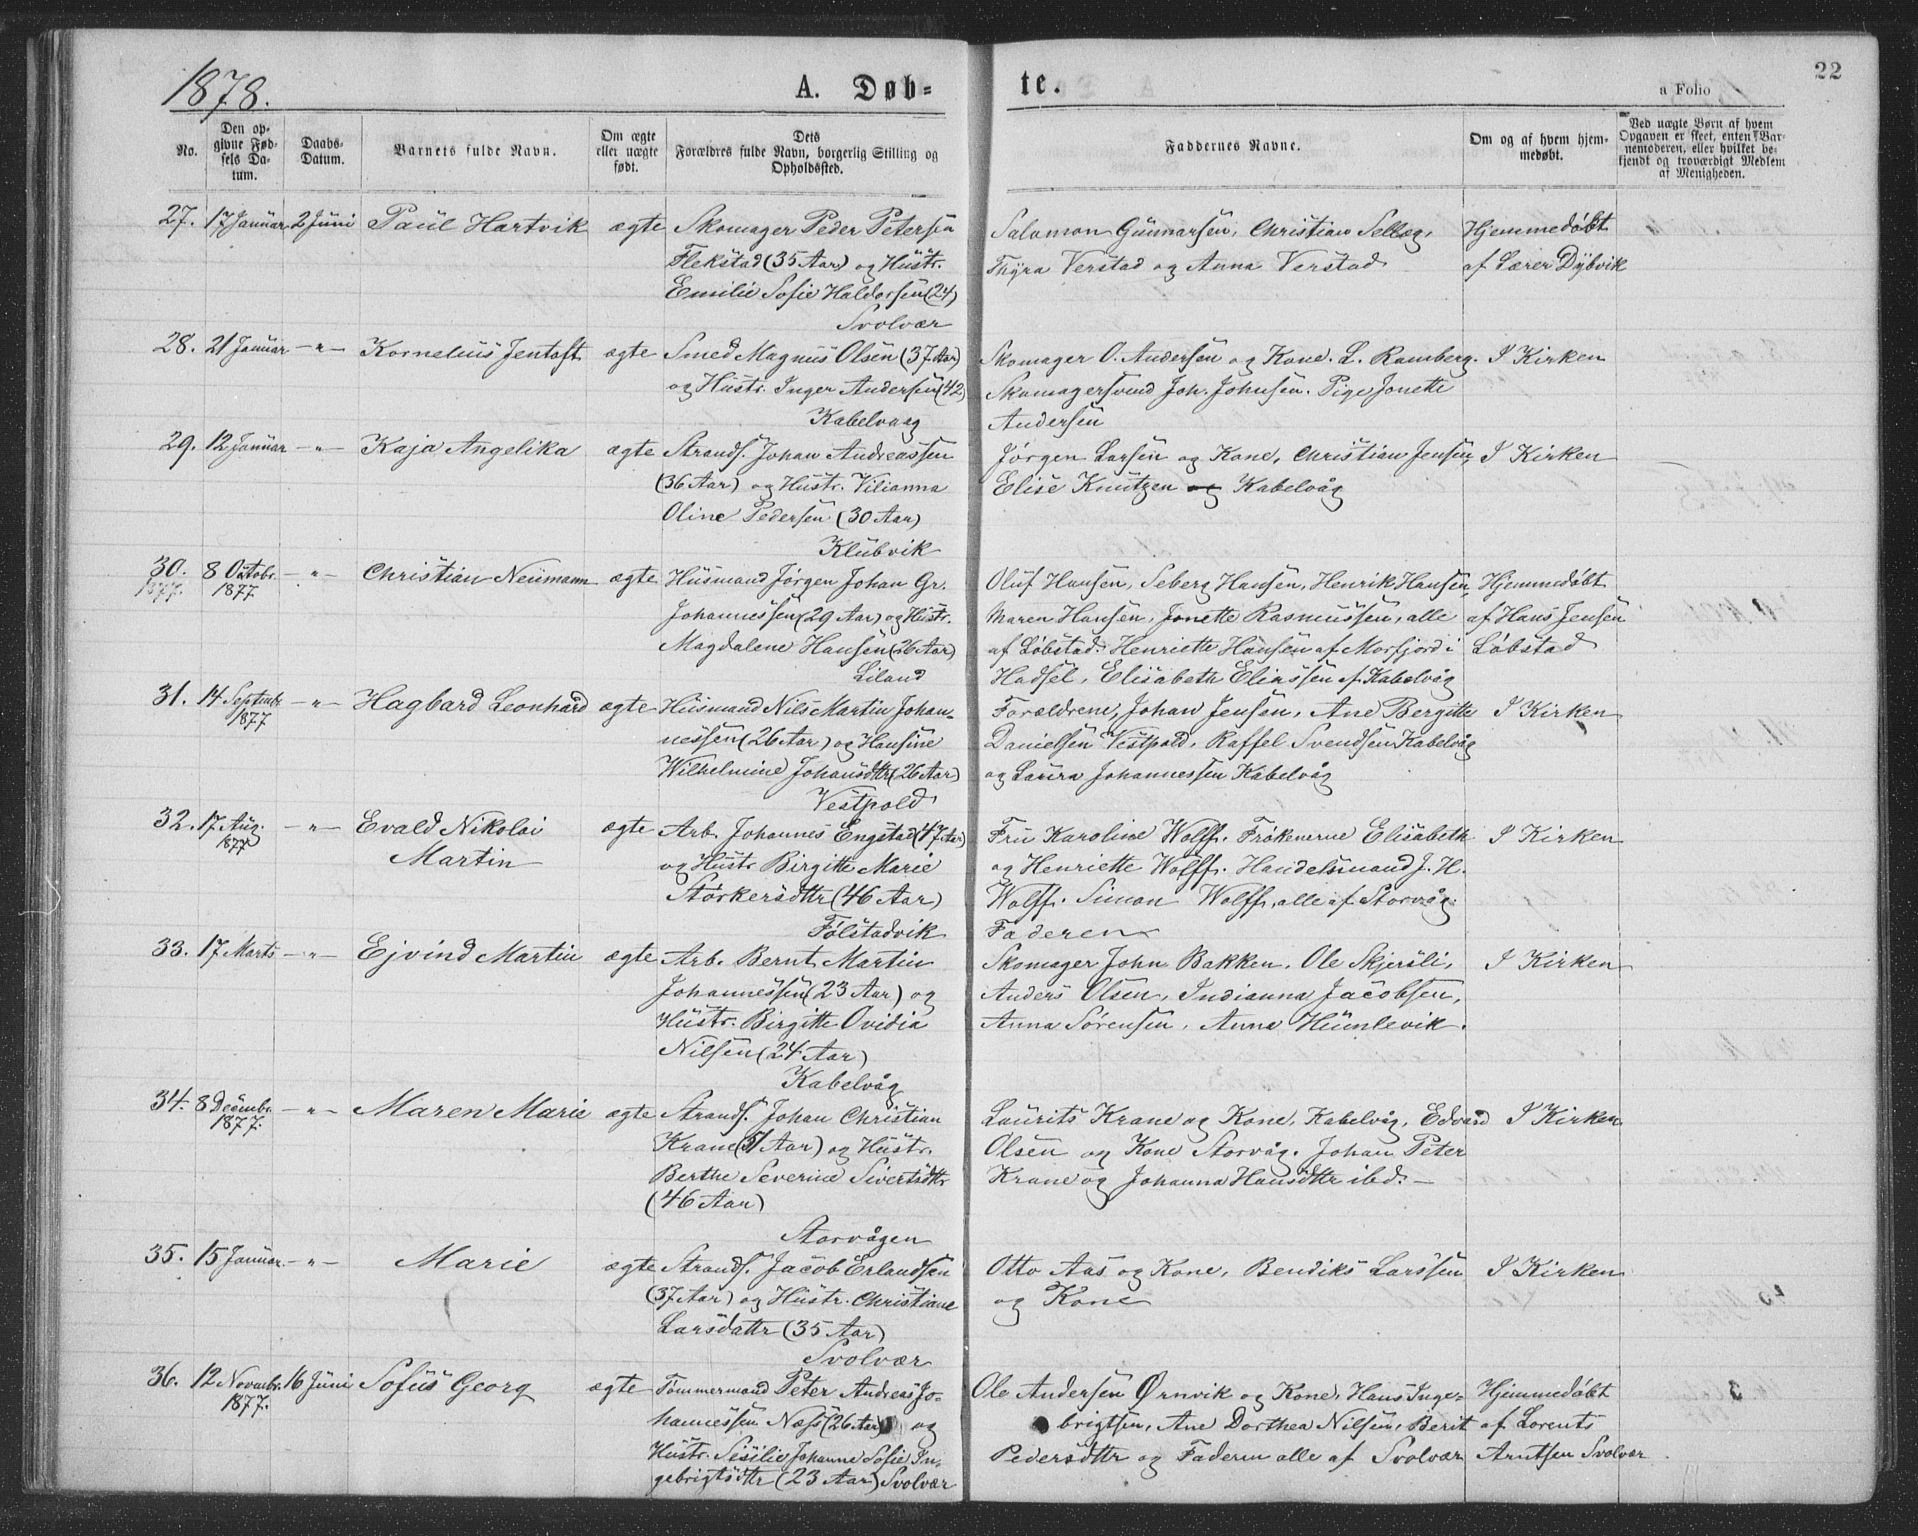 1878.
A. Døb-
te.
a Folio
22
No.
Den op-
givne Fød-
sels Da-
tum.
Daabs-
Datum.
Barnets fulde Navn.
Om ægte
eller uægte
født.
Dets
Forældres fulde Navn, borgerlig Stilling og
Opholdssted.
Faddernes Navne.
Om og af hvem hjem-
medøbt.
Ved uægte Børn af hvem
Opgaven er skeet, enten Bar-
nemoderen, eller hvilket be-
kjendt og troværdigt Medlem
af Menigheden.
27. 17 Januar 2 Juni Paul Hartvik ægte Skomager Peder Petersen
Flekstad (35 Aar) og Hustr.
Emilie Sofie Haldorsen (24)
Svolvær
Salomon Gunnarsen, Christian Selleg,
Thyra Verstad og Anna Verstad
Hjemmedøbt
af Lærer Dybvik
28. 21 Januar -"- Kornelius Jentoft ægte Smed Magnus Olsen (37 Aar)
og Hustr. Inger Andersen (42)
Kabelvaag
Skomager O. Andersen og Kone. L. Ramberg.
Skomagersvend Joh. Johnsen. Pige Jonette
Andersen
I Kirken
29. 12 Januar -"- Kaja Angelika ægte Strands. Johan Andreassen
(36 Aar) og Hustr. Vilianna
Oline Pedersen (30 Aar)
Klubvik
Jørgen Larsen og Kone, Christian Jensen,
Elise Knutzen og Kabelvåg
I Kirken
30. 8 Octobr. -"- Christian Neumann ægte Husmand Jørgen Johan Gr.
1877. 1877
Johannessen (29 Aar) og Hustr.
Magdalene Hansen (26 Aar)
Liland
Oluf Hansen, Seberg Hansen, Henrik Hansen,
Maren Hansen, Jonette Rasmussen, alle
af Løbstad. Henriette Hansen af Morfjord i
Hadsel, Elisabeth Eliassen af Kabelvåg
Hjemmedøbt
af Hans Jensen
Løbstad
31. 14 Septembr. -"- Hagbard Leonhard ægte Husmand Nils Martin Johan-
1877
nessen (26 Aar) og Hansine
Wilhelmine Johansdttr (26 Aar)
Vestpold
Forældrene, Johan Jensen, Ane Bergitte
Danielsen Vestpold, Raffel Svendsen Kabelvåg
og Laura Johannessen Kabelvåg
I Kirken
32. 17 Aug. -"- Evald Nikolai ægte Arb. Johannes Engstad (47 Aar)
1877
Martin
og Hustr. Birgitte Marie
Størkersdttr (46 Aar)
Følstadvik
Fru Karoline Wolff. Frøknerne Elisabeth
og Henriette Wolff. Handelsmand J. H.
Wolff. Simon Wolff, alle af Storvåg.
Faderen
I Kirken
33. 17 Marts -"- Ejvind Martin ægte Arb. Bernt Martin
Johannessen (23 Aar) og
Hustr. Birgitte Ovidia
Nilsen (24 Aar)
Kabelvåg
Skomager John Bakken. Ole Skjersli,
Anders Olsen, Indianna Jacobsen,
Anna Sørensen, Anna Humlevik.
I Kirken
34. 8 Decembr. -"- Maren Marie ægte Strands. Johan Christian
1877.
Krane (51 Aar) og Hustr.
Berthe Severine Sivertsdttr
(46 Aar)
Storvågen
Laurits Krane og Kone, Kabelvåg, Edvard
Olsen og Kone Storvåg. Johan Peter
Krane og Johanna Hansdttr ibd.-
I Kirken
35. 15 Januar -"- Marie ægte Strands. Jacob Erlandsen
(37 Aar) og Hustr. Christiane
Larsdattr (35 Aar)
Svolvær
Otto Aas og Kone, Bendiks Larssen
og Kone
I Kirken
36. 12 Novembr. 16 Juni Sofus Georg ægte Tømmermand Peter Andreas Jo-
1877.
hannessen Næss (26 Aar) og
Hustr. Sisilie Johanne Sofie In-
gebrigtsdttr (23 Aar) Svolvær
Ole Andersen Ørnvik og Kone, Hans Inge-
brigtsen, Ane Dorthea Nilsen, Berit
Pedersdttr og Faderen alle af Svolvær
Hjemmedøbt
af Lorents
Arntsen Svolvær